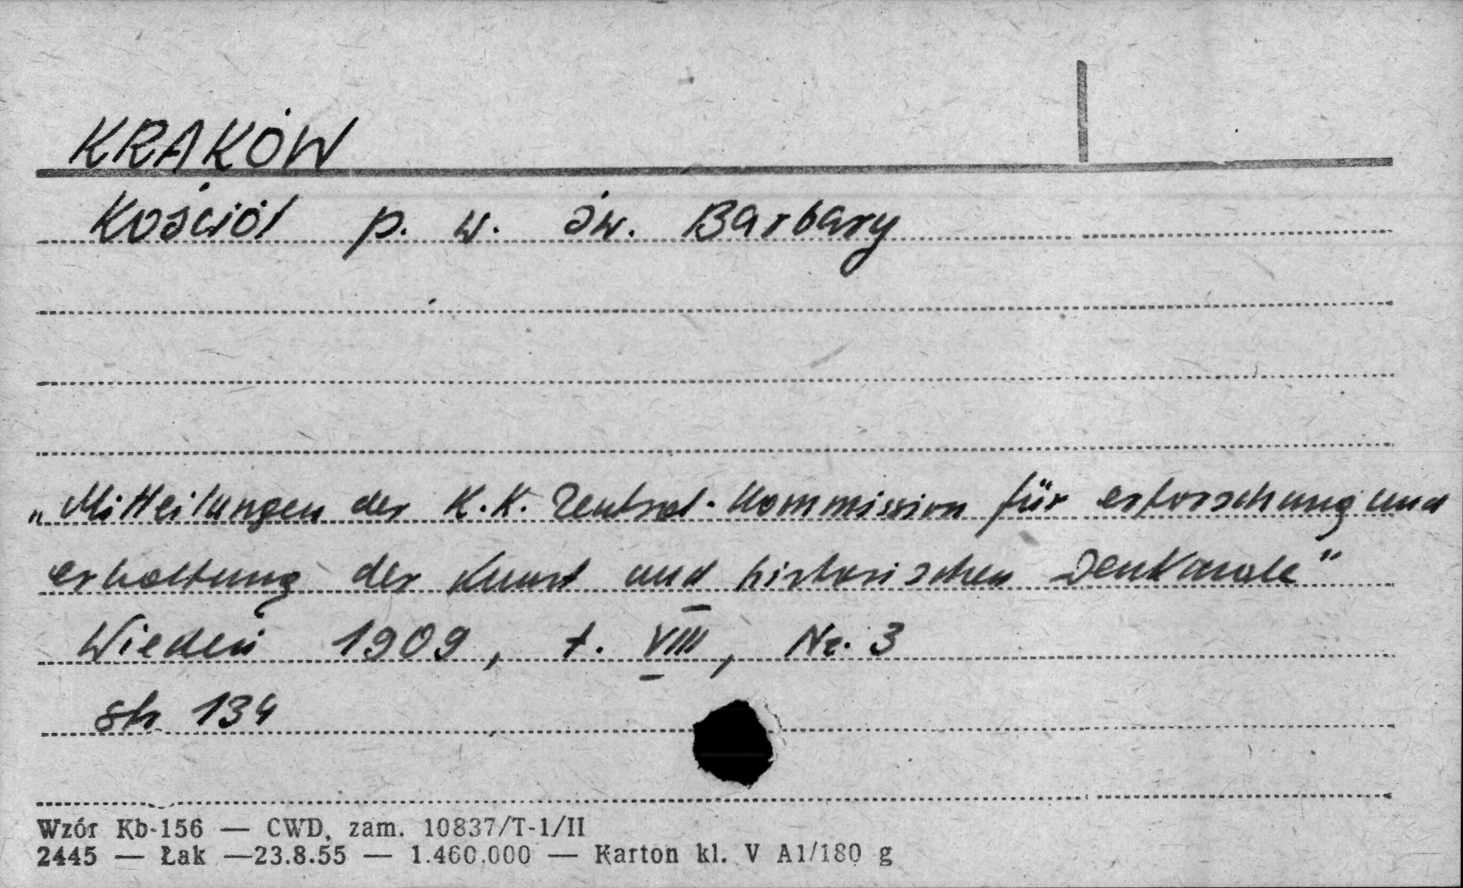 KRAKÓW
Kościół p. w. św. Barbary
„Mitteilungen der K.K. Zentral-Kommission für erforschung und
erhaltung der Kunst und historischen Denkmale"
Wiedeń 1909, t. VIII, Nr. 3
str 134
Wzór Kb-156 — CWD, zam. 10837/T-1/II
2445 — Łak —23.8.55 — 1.460.000 — Karton kl. V A1/180 g